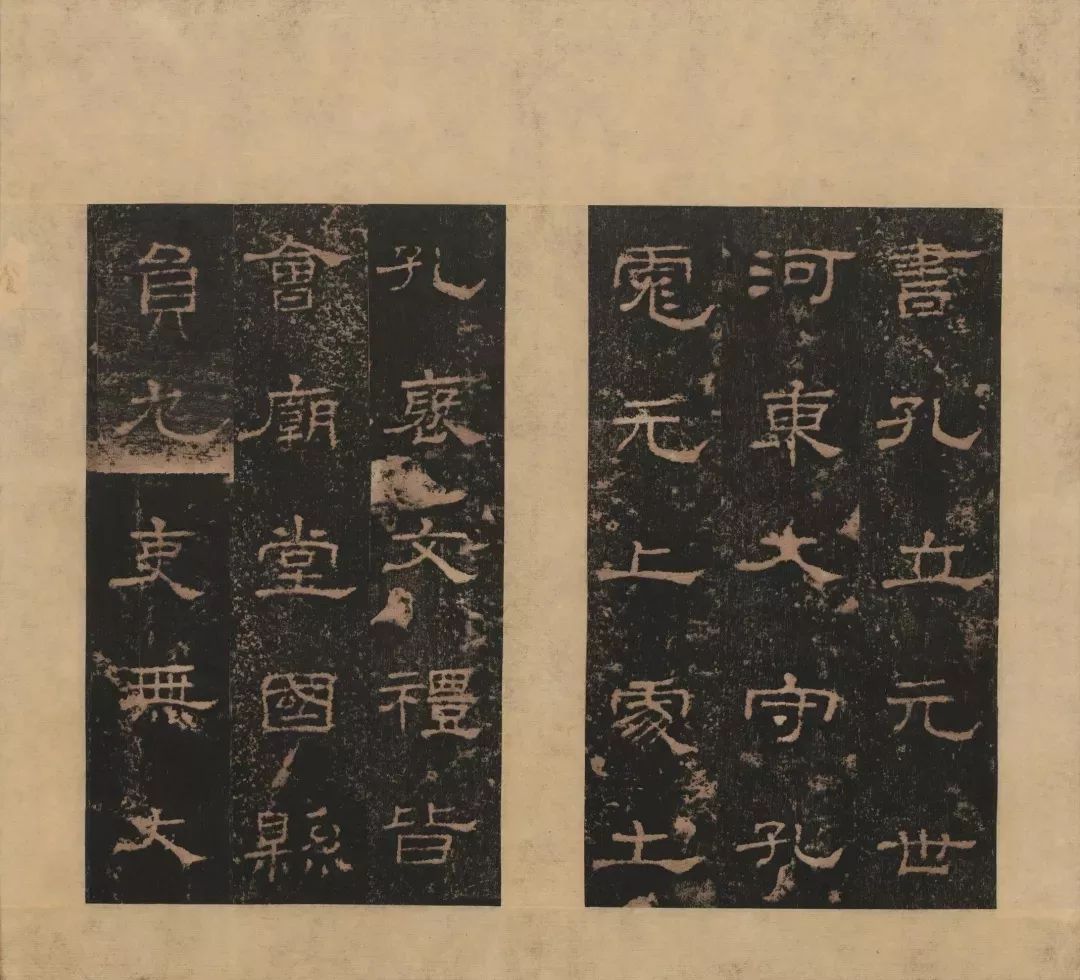 書孔立元世
河東大守孔
彪元上處土
孔褒文禮皆
會廟堂國縣
員冗吏無大